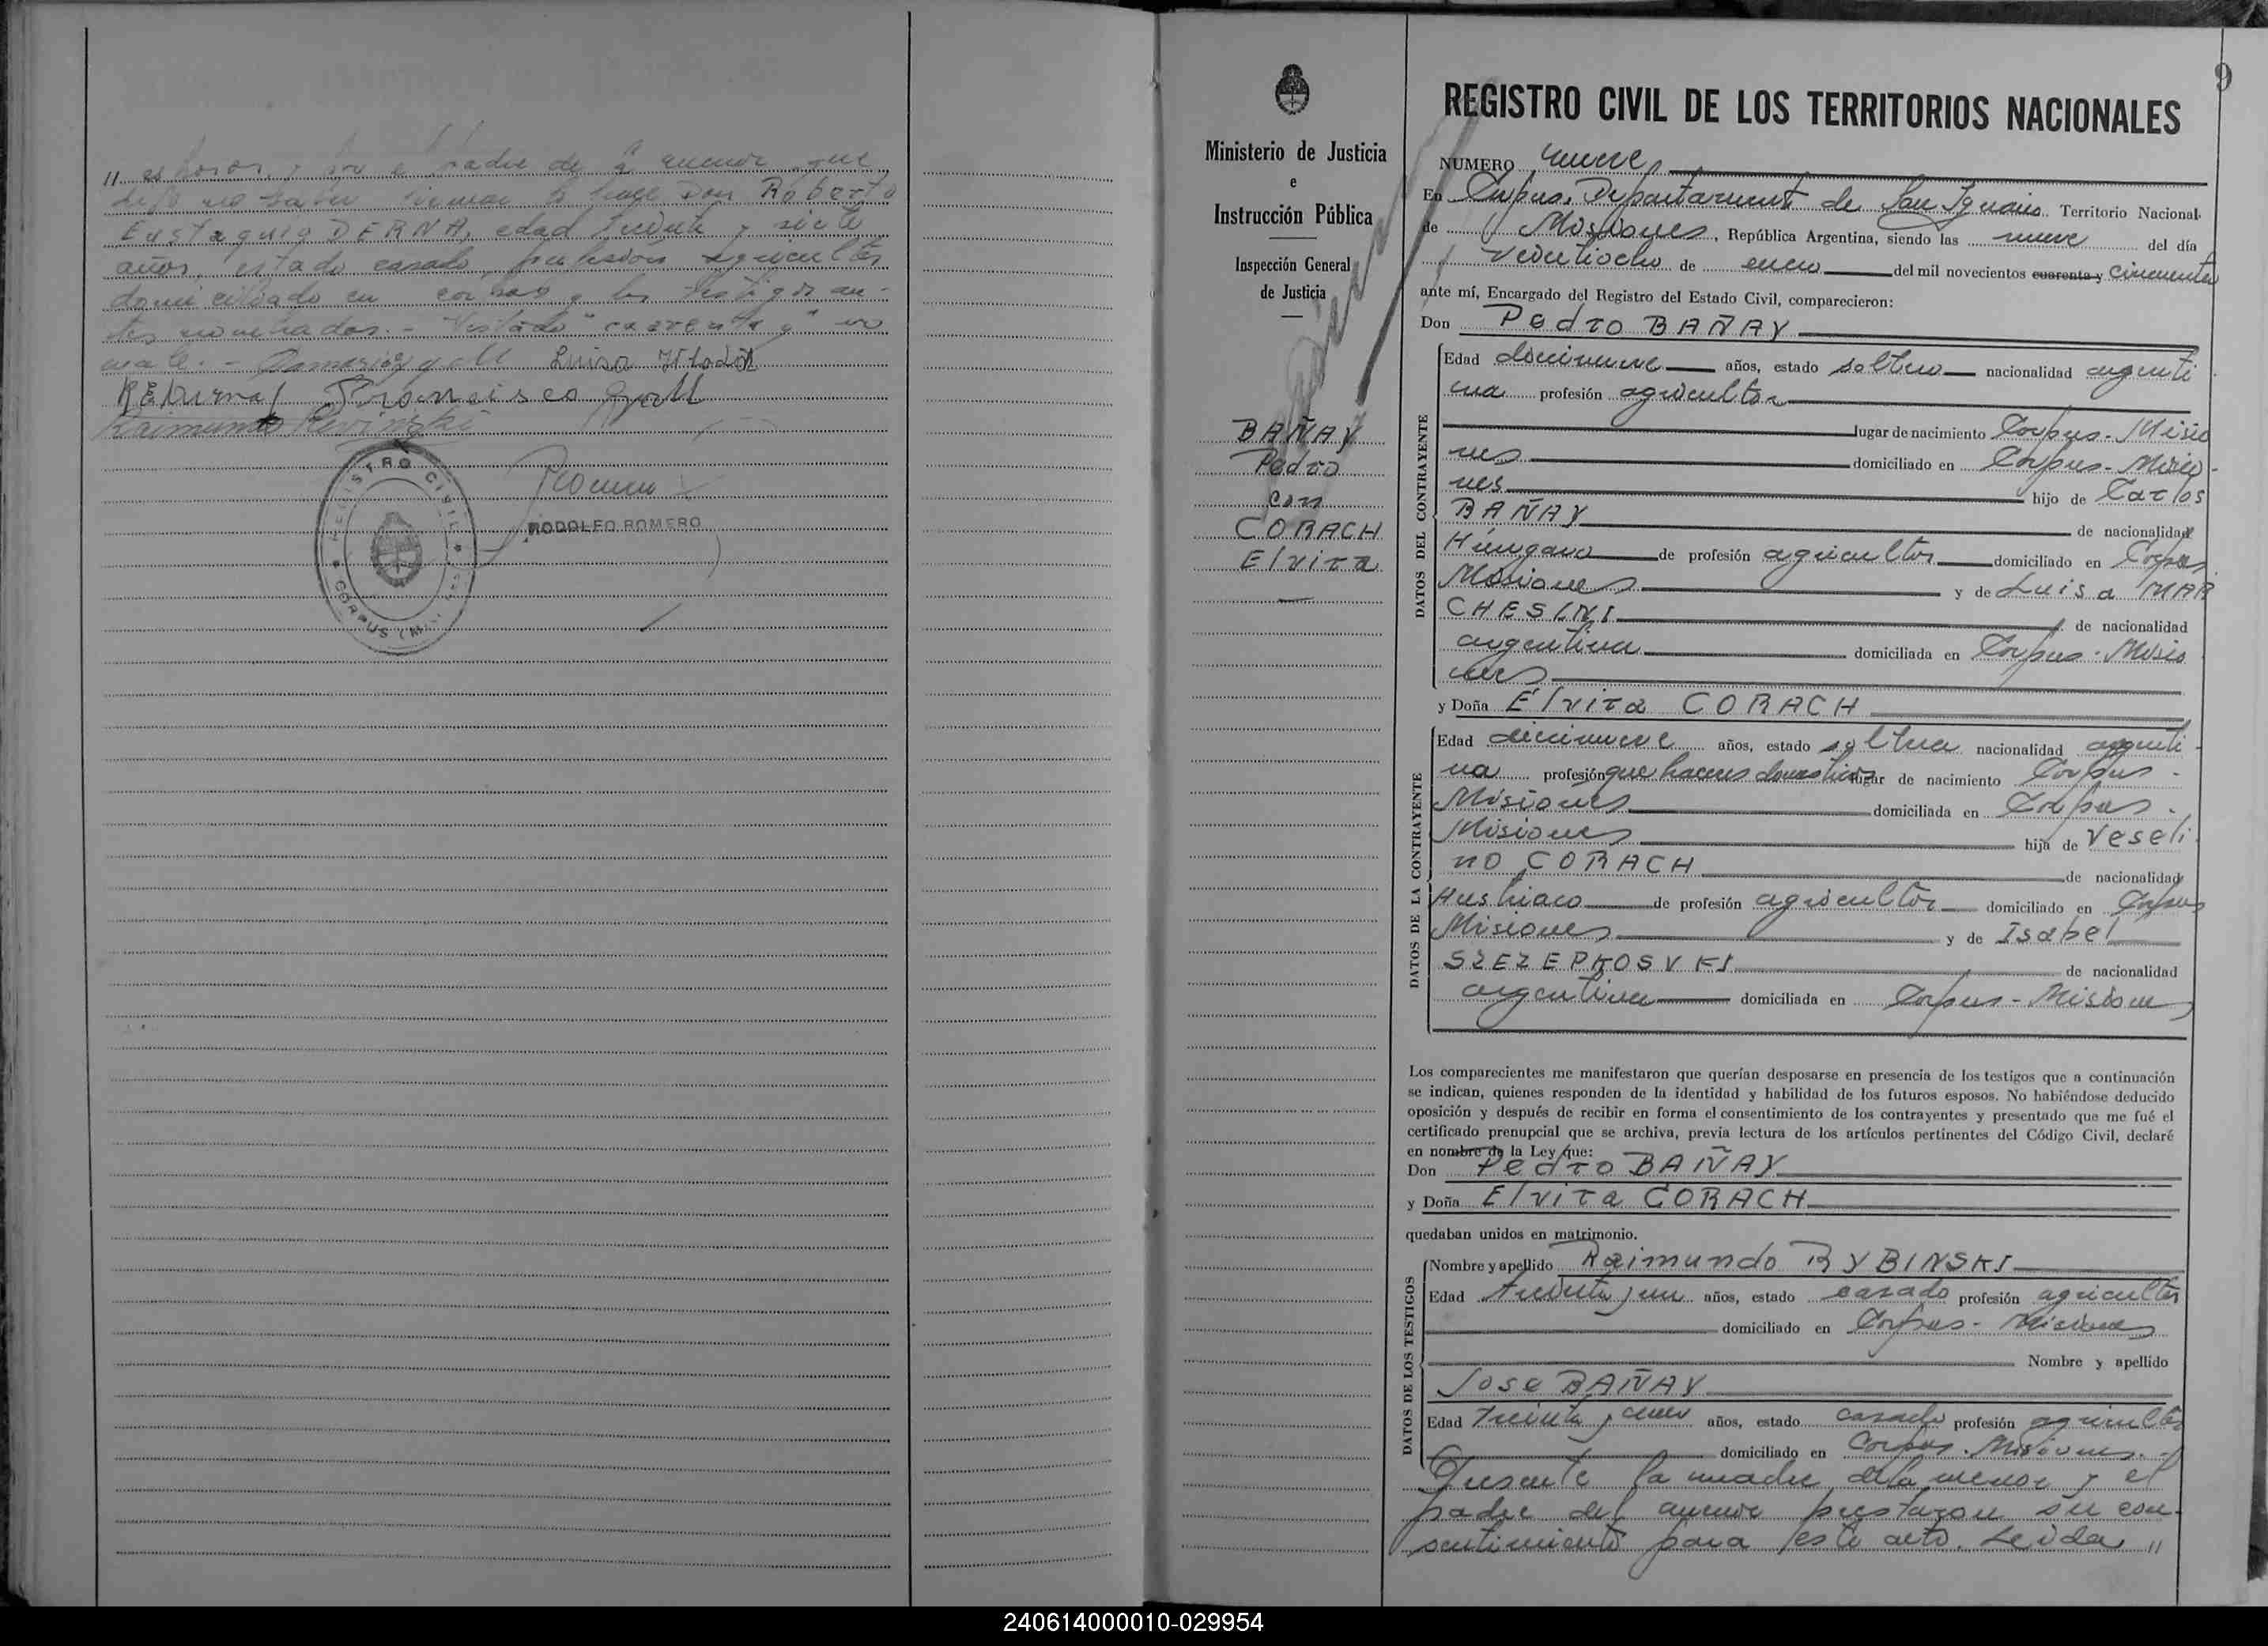 esposos, y por el padre de la menor que
dijo no saber firmar lo hace Don Roberto
Eustaquio DERNA, edad treinta y siete
años, estado casado, profesión agricultor
domiciliado en Corpus y los testigos an-
tes nombrados.- Testado "cuarenta y" no
vale.-
Luisa
Francisco
Raimundo
REGISTRO CIVIL
CORPUS (Mnes.)
RODOLFO ROMERO
9
Ministerio de Justicia
e
Instrucción Pública
Inspección General
de Justicia
BAÑAY
Pedro
con
CORACH
Elvira
REGISTRO CIVIL DE LOS TERRITORIOS NACIONALES
NUMERO nueve
En Corpus, Departamento de San Ignacio Territorio Nacional
de Misiones, República Argentina, siendo las nueve del día
veintiocho de enero del mil novecientos cuarenta y cincuenta
ante mí, Encargado del Registro del Estado Civil, comparecieron:
Don Pedro BAÑAY
DATOS DEL CONTRAYENTE
Edad diecinueve años, estado soltero nacionalidad argenti
na profesión agricultor
lugar de nacimiento Corpus - Misio
nes domiciliado en Corpus - Misio-
nes hijo de Carlos
BAÑAY de nacionalidad
Húngaro de profesión agricultor domiciliado en Corpus
Misiones y de Luisa MAR
CHESINI de nacionalidad
argentina domiciliada en Corpus - Misio
nes
y Doña Elvira CORACH
DATOS DE LA CONTRAYENTE
Edad diecinueve años, estado soltera nacionalidad argenti-
na profesión que haceres domesticos lugar de nacimiento Corpus -
Misiones domiciliada en Corpus -
Misiones hija de Veseli-
no CORACH de nacionalidad
Austriaco de profesión agricultor domiciliado en Corpus
Misiones y de Isabel
SZEZEPKOSVKI de nacionalidad
argentina domiciliada en Corpus - Misiones
Los comparecientes me manifestaron que querían desposarse en presencia de los testigos que a continuación
se indican, quienes responden de la identidad y habilidad de los futuros esposos. No habiéndose deducido
oposición y después de recibir en forma el consentimiento de los contrayentes y presentado que me fué el
certificado prenupcial que se archiva, previa lectura de los artículos pertinentes del Código Civil, declaré
en nombre de la Ley que:
Don Pedro BAÑAY
y Doña Elvira CORACH
quedaban unidos en matrimonio.
DATOS DE LOS TESTIGOS
Nombre y apellido Raimundo RYBINSKI
Edad treinta y un años, estado casado profesión agricultor
domiciliado en Corpus - Misiones
Nombre y apellido
Jose BAÑAY
Edad treinta y años, estado casado profesión agricultor
domiciliado en Corpus - Misiones.-
Presente la madre de la menor y el
padre del menor prestaron su con-
sentimiento para este acto. Leida "
240614000010-029954